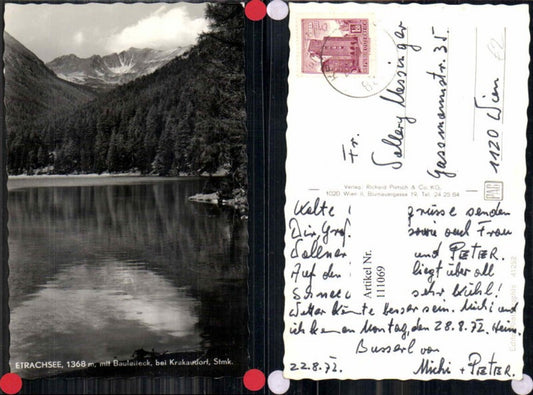 ETRACHSEE, 1368 m, mit Bauleiteck, bei Krakaudorf, Stmk.
Fr.
Messinger
Gassmannstr. 35
1120 Wien
Verlag: Richard Pietsch & Co. KG.
1020 Wien II, Blumauergasse 19, Tel. 24 25 64
Artikel Nr.
111069
Kalte Grüsse senden
Dir,
sowie auch Frau
und PETER.
Auf den liegt über all
Schnee sehr kühl!
Wetter könnte besser sein. Michi und
ich kommen Montag, den 28.8.72, heim.
Busserl von
Michi + PETER.
22.8.72.